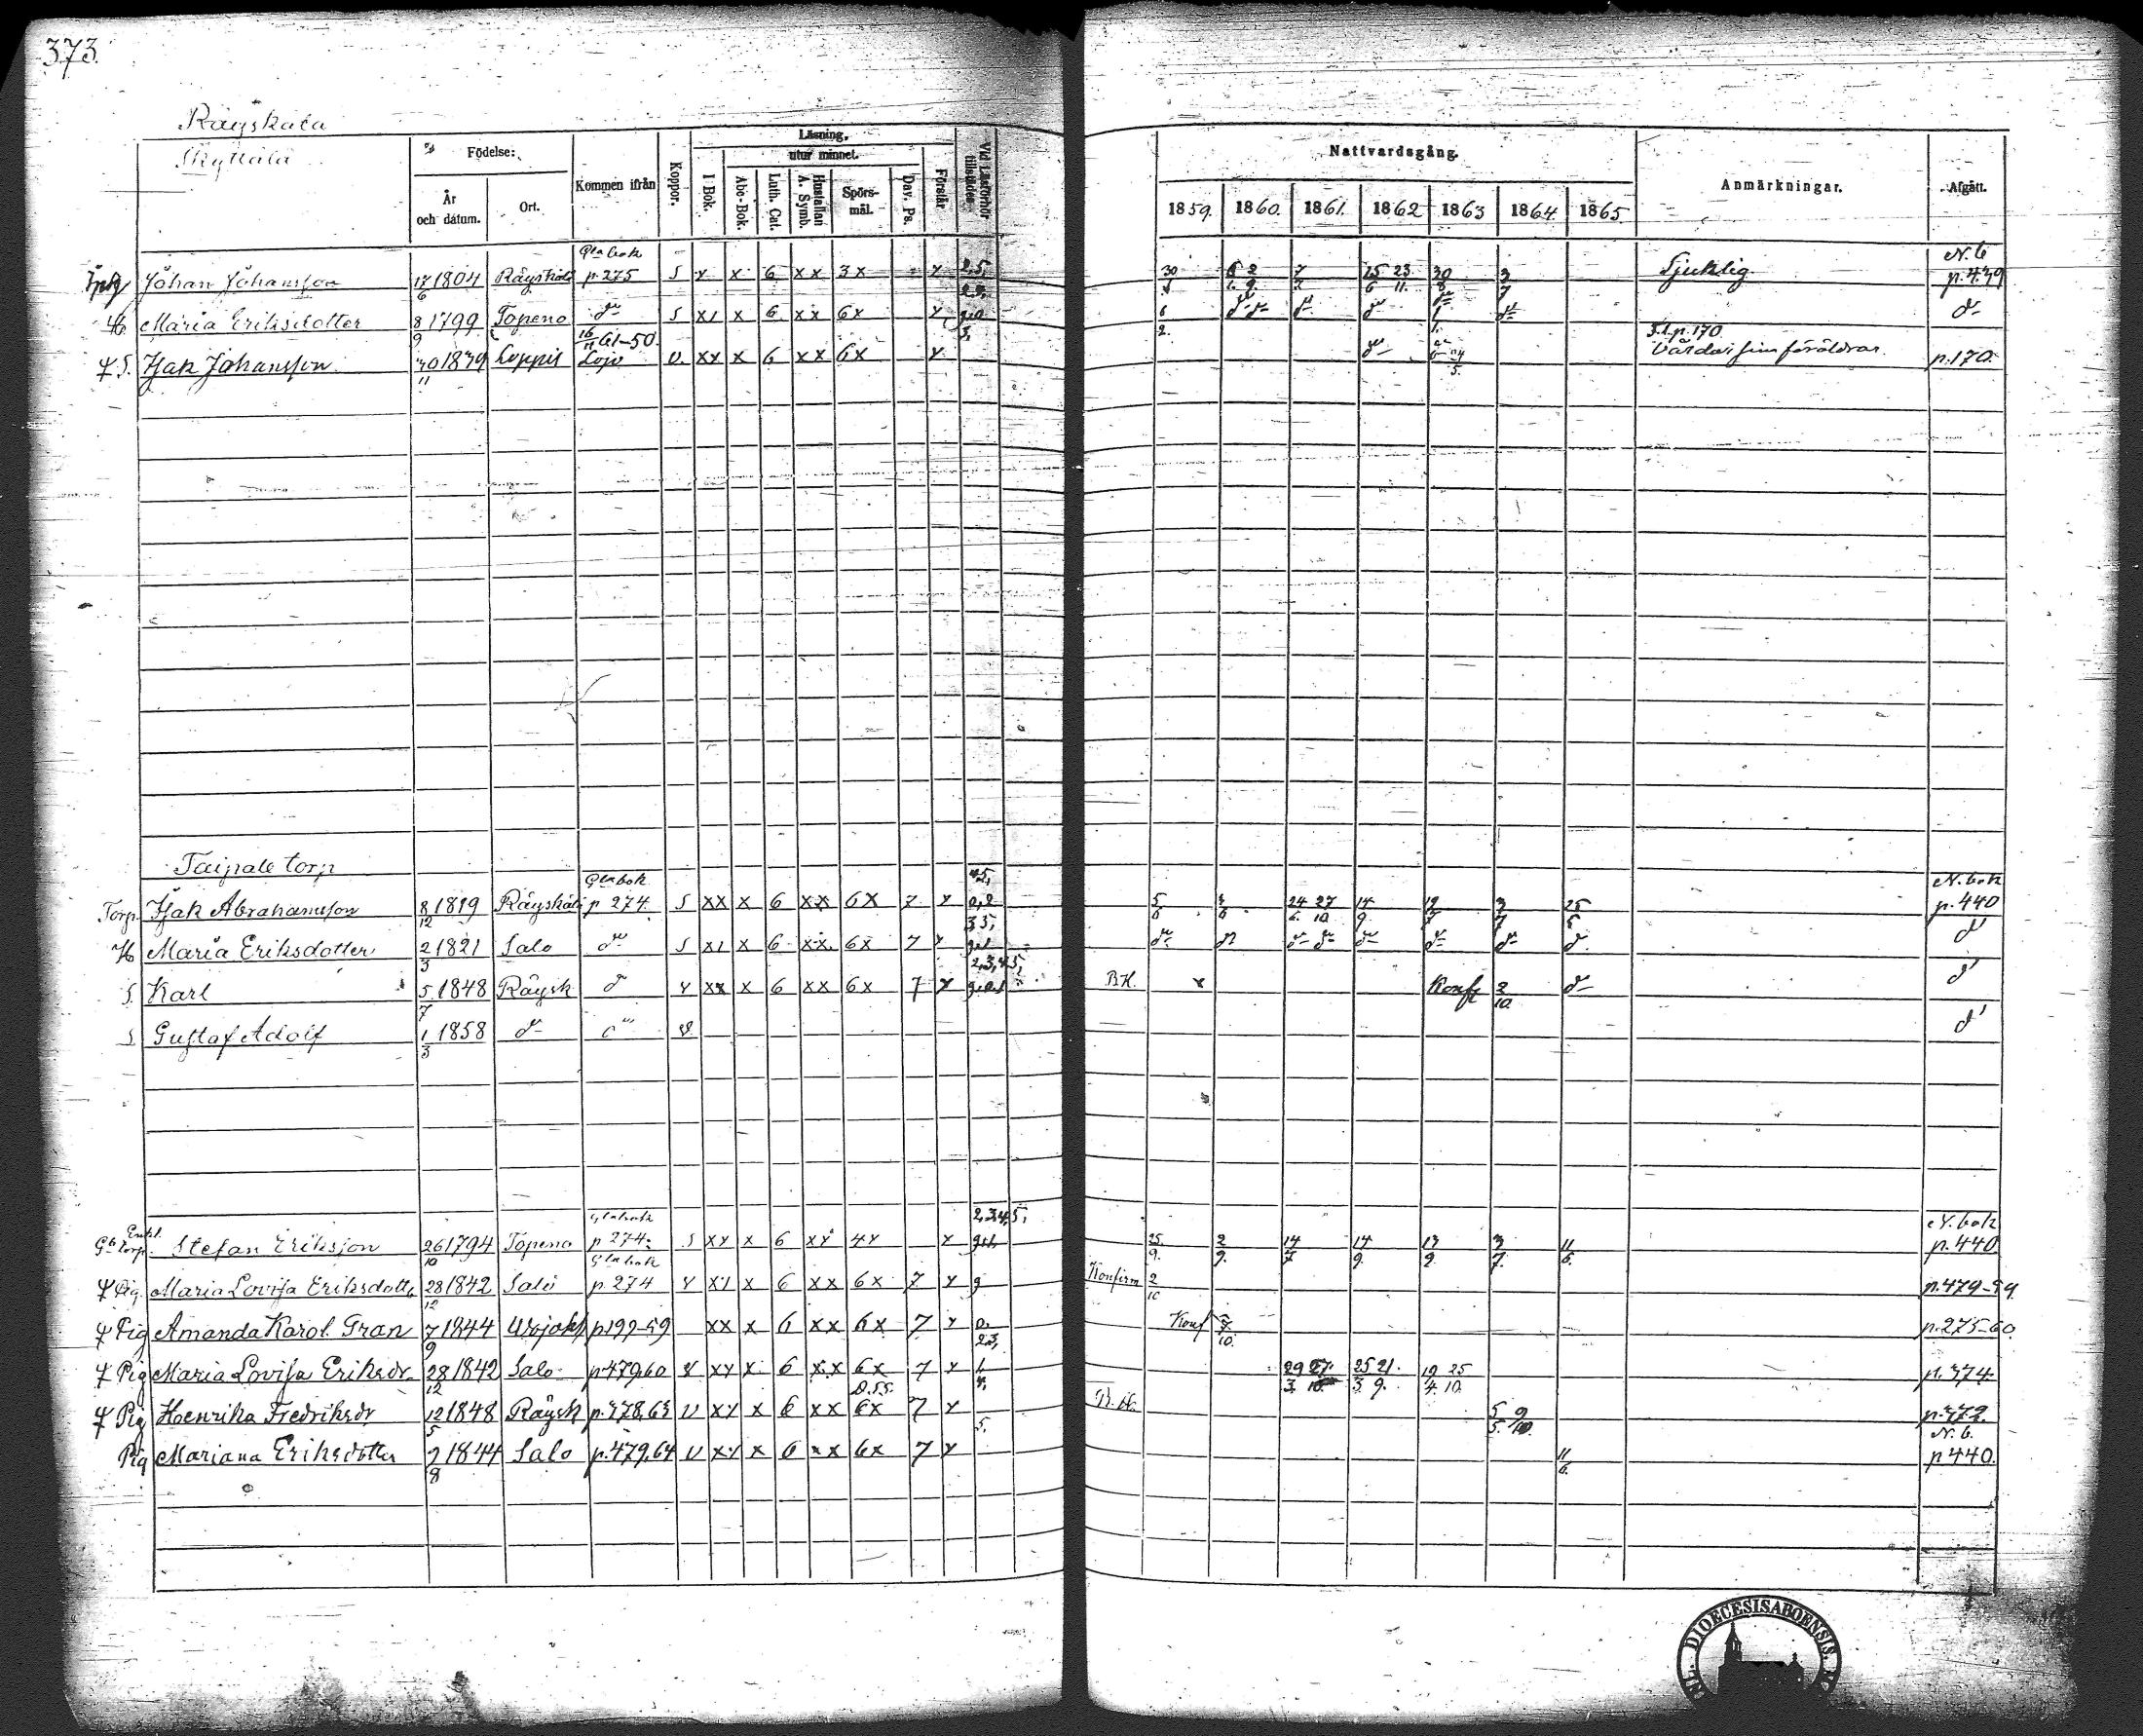 373.
Räyskälä
Skyttälä
Födelse:
År och datum.
Ort.
Kommen ifrån
Koppor.
Läsning.
utur minnet.
I Bok.
Abc-Bok.
Luth. Cat.
Hustaflan A. Symb.
Spörs-mål.
Dav. Ps.
Förstår
Vid Läsförhör tillstädes
Nattvardsgång.
1859. 1860. 1861. 1862 1863 1864 1865.
Anmärkningar.
Afgått.
Johan Johansson 17/6 1804 Räyskälä Gla bok p. 275 S x x 6 xx 3x x 2,5, 30 7 25/6 23/11 30/8 3/7 Sjuklig N. b p. 439
H. Maria Eriksdotter 8/9 1799 Topeno d:o S x1 x 6 xx 6x x d:o
S. Isak Johansson 30/11 1839 Loppis 61-50 Lojo v. xx x 6 xx 6x x d:o S.l.p. 170 Vårdar sina föräldrar. p. 170.
Taipale torp
Torp. Isak Abrahamsson 8/12 1819 Räyskälä Gla bok p 274. S xx x 6 xx 6x 7 x 5/6 24/6 27/10 14/9 12/7 3/7 25/5 N. bok p. 440
H Maria Eriksdotter 2/3 1821 Salo d:o S x1 x 6 xx 6x 7 x d:o d:o d:o d:o d:o d:o d:o d:o d:o
S. Karl 5/7 1848 Räysk d:o v xx x 6 xx 6x 7 x 2,3,4,5, B.K. x Konf 2/10 d:o d:o
S Gustaf Adolf 1/3 1858 d:o d:o v d:o
Enkl. Gb torp. Stefan Eriksson 26/10 1794 Topeno Gla bok p 274. S xx x 6 xx 4x x 2,3,4,5, 25/9. 2/9. 14/7 14/9. 13/9. 3/7. 11/6. N. bok p. 440
Pig. Maria Lovisa Eriksdotte 28/12 1842 Salo Gla bok p. 274 v x1 x 6 xx 6x 7 x g Konfirm 2/10 p. 479-59.
Pig Amanda Karol. Gran 7/9 1844 p 199-59 xx x 6 xx 6x 7 x Konf 7/10. p. 275-60.
Pig Maria Lovisa Eriksdr. 28/12 1842 Salo p 479,60 v xx x 6 xx 6x 7 x 2,3, 29/3. 27/10. 25/3 21/9. 19/4. 25/10. p. 374
Pig Henrika Fredriksdr 12/5 1848 Räysk p. 378,63 v xx x 6 xx 6x 7 x 4, B. K. 5/5. 9/10. p. 372.
Pig Mariana Eriksdotter 2/8 1844 Salo p. 479,64 v xx x 6 xx 6x 7 x 5. 11/6. N. b. p 440.
DIOECESIS ABOENSIS